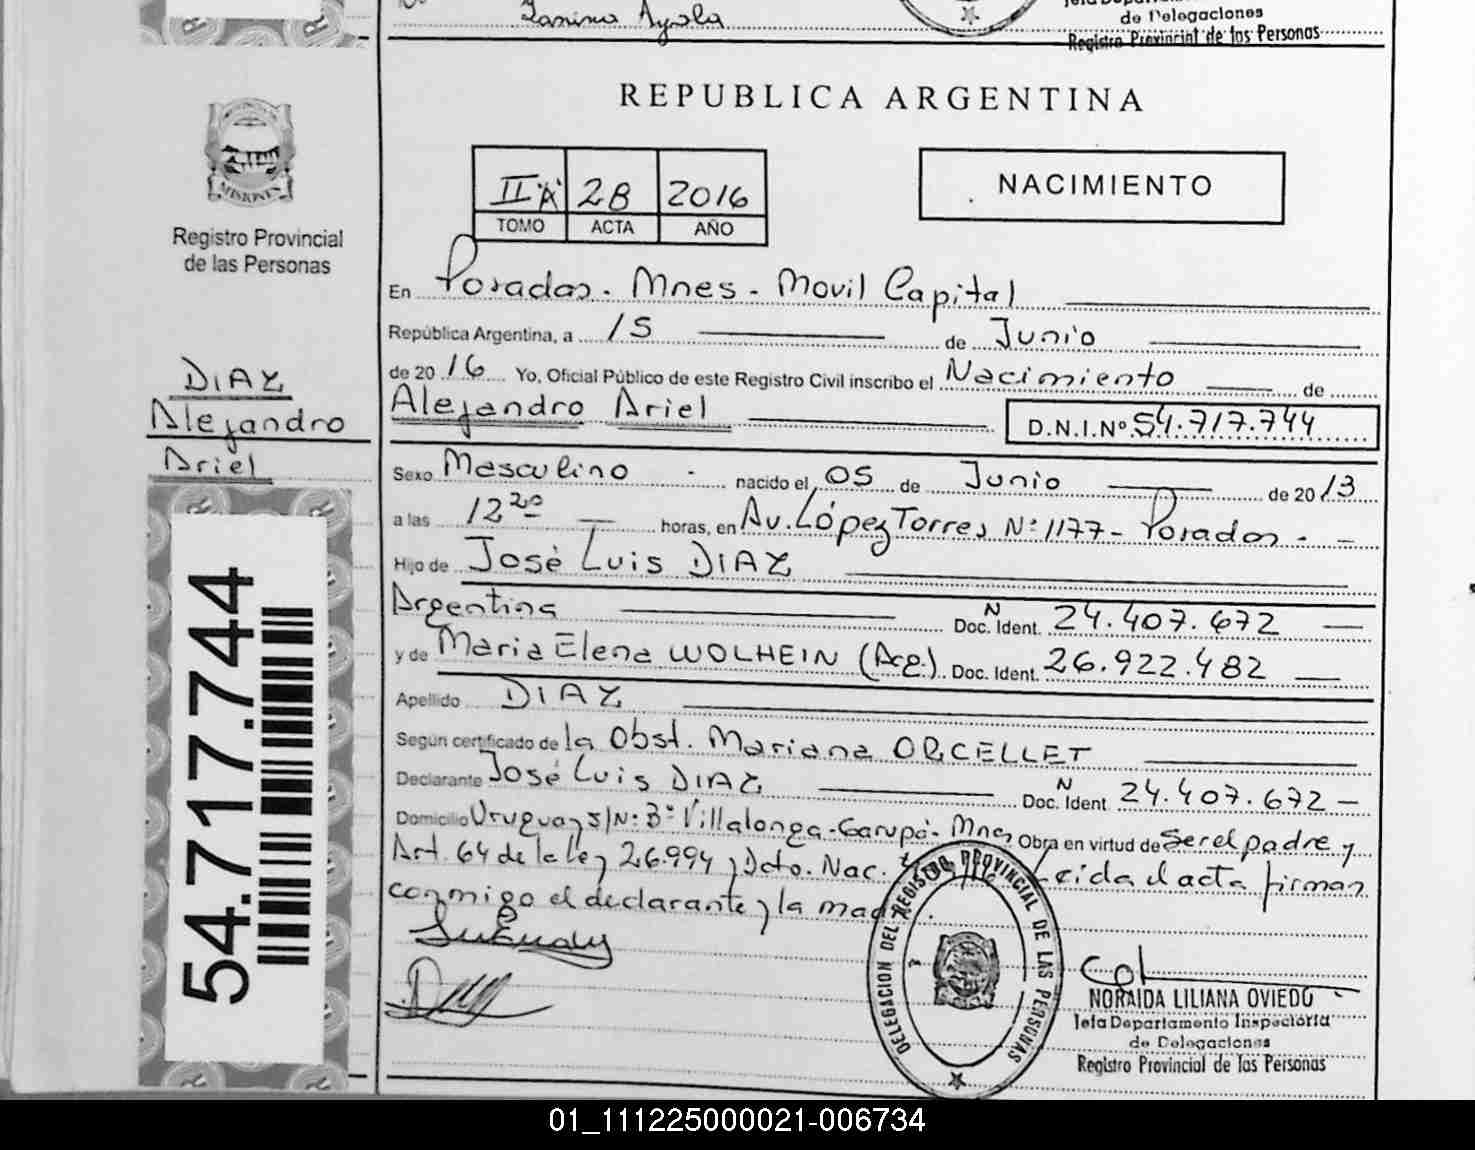 Yanina Ayala
de Delegaciones
Registro Provincial de las Personas
REPUBLICA ARGENTINA
MISIONES
Registro Provincial
de las Personas
II "A" 28 2016
TOMO ACTA AÑO
NACIMIENTO
En Posadas - Mnes - Movil Capital
República Argentina, a 15 de Junio
de 20 16 Yo, Oficial Público de este Registro Civil inscribo el Nacimiento de
Alejandro Ariel D.N.I.Nº 54.717.744
DIAZ
Alejandro
Ariel
Sexo Masculino - nacido el 05 de Junio de 20 13
a las 12 20 horas, en Av. López Torres Nº 1177 - Posadas -
Hijo de José Luis DIAZ
Argentina N Doc. Ident. 24.407.672
y de Maria Elena WOLHEIN (Arg.). Doc. Ident. 26.922.482
Apellido DIAZ
Según certificado de la Obst. Mariana ORCELLET
Declarante José Luis DIAZ N Doc. Ident 24.407.672
Domicilio Uruguay S/Nº Bº Villalonga - Garupá - Mnes Obra en virtud de ser el padre y
Art. 64 de la ley 26.994 y Dcto. Nac. Leida el acta firman
conmigo el declarante y la madre.
54.717.744
DELEGACION DEL REGISTRO PROVINCIAL DE LAS PERSONAS
NORAIDA LILIANA OVIEDO
Jefa Departamento Inspectoria
de Delegaciones
Registro Provincial de las Personas
01_111225000021-006734